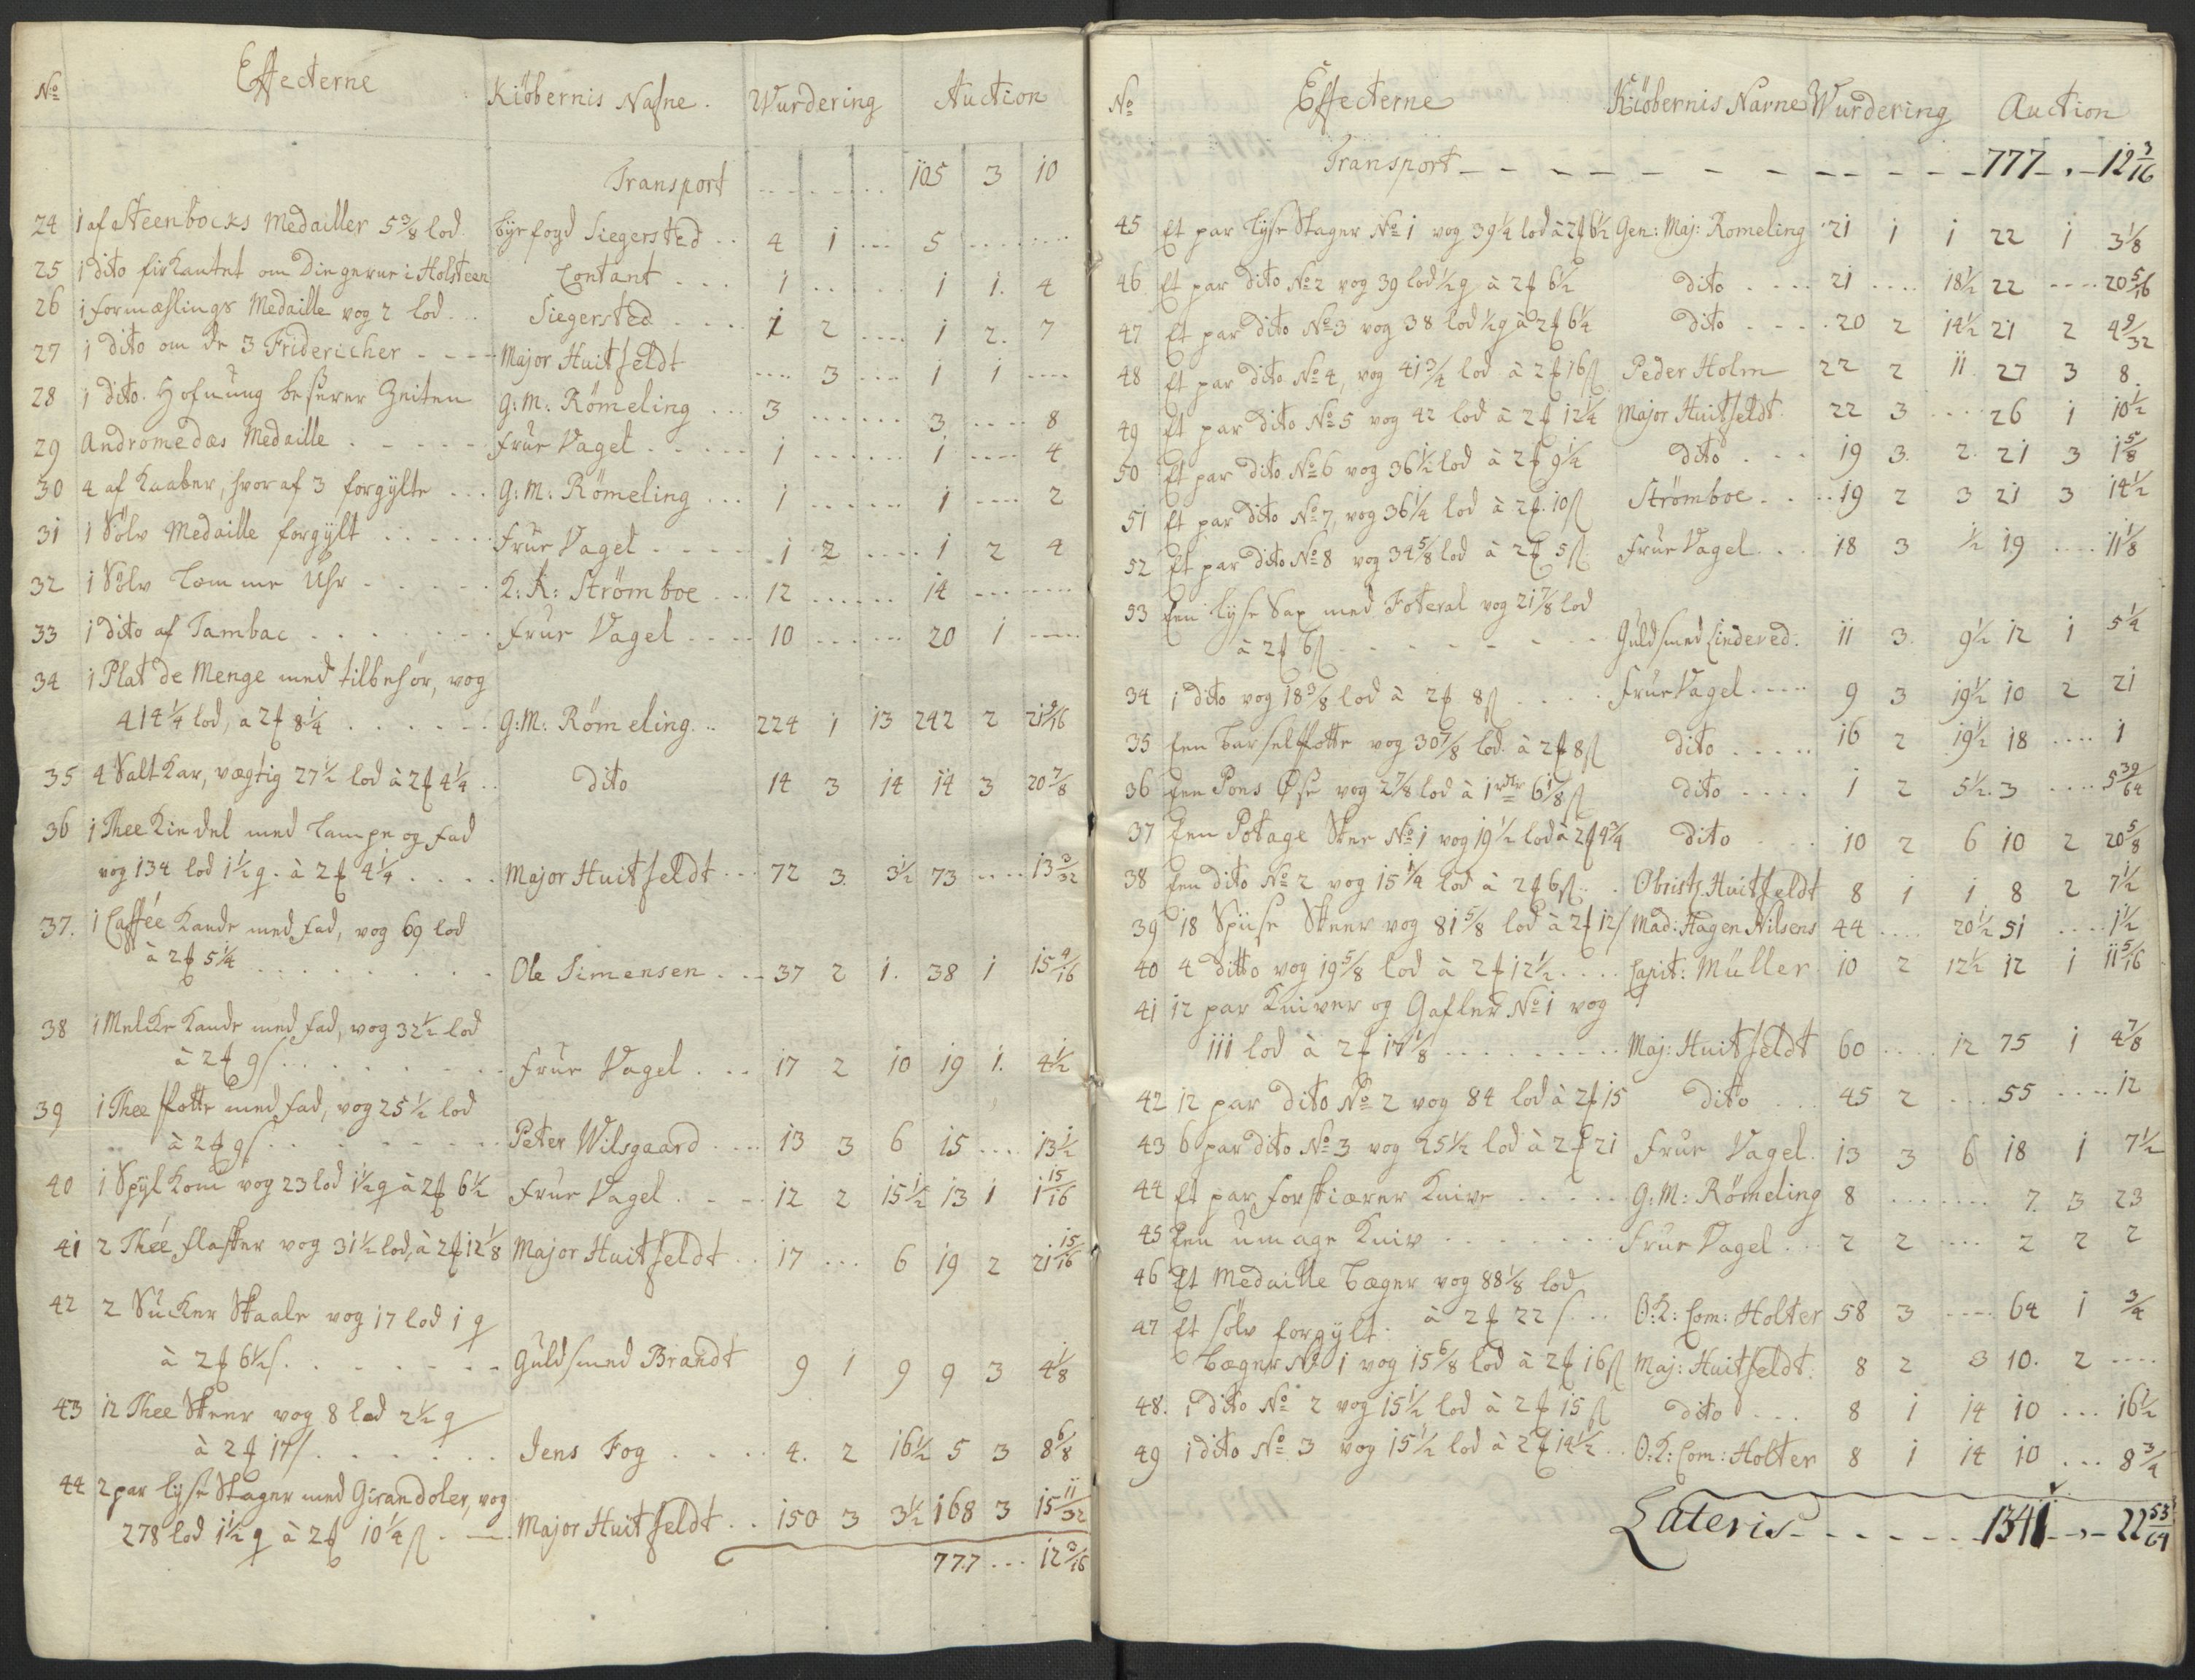 No Effecterne Kiöbernis Nafne. Wurdering Auction
Transport ... 105 3 10
24 1 af Steenbocks Medailler 5 3/8 lod. Byefoyd Siegersted .. 4 1 ... 5 ......
25 1 dito firkantet om Dingerne i Holsteen Contant ... 1 ..... 1 1. 4
26 1 formæhlings Medaille vog 2 lod ... Siegersted .... 1 2 .... 1 2. 7
27 1 dito om de 3 Fridericher - - - - Major Huitfeldt .... 3 ... 1 1 ....
28 1 dito. Hofnung beßerer Zeiten G: M: Römeling ... 3 ...... 3 .... 8
29 Andromedæs Medaille - - - - - Frue Vagel ..... 1 ...... 1 .... 4
30 4 af Kaaber, hvoraf 3 forgylte ... G: M: Römeling ... 1 ..... 1 .... 2
31 1 Sölv Medaille forgylt ..... Frue Vagel .... 1 2 .... 1 2 4
32 1 Sölv Lomme Uhr - - - - - - K: Strömboe ... 12 ...... 14 ......
33 1 dito af Tambac ....... Frue Vagel .... 10 ...... 20 1 ....
34 1 Plat de Menge med tilbehör, vog
414 1/4 lod, a 2 8 1/4 ...... G: M: Römeling .. 224 1 13 242 2 21 9/16
35 4 Salt Kar, vægtig 27 1/2 lod à 2 4 1/4 .. dito 14 3 14 14 3 20 7/8
36 1 Thee Kiedel med Lampe og fad
vog 134 lod 1 1/2 q. à 2 4 1/4 .... Major Huitfeldt ... 72 3. 3 1/2 73 .... 13 3/32
37. 1 Caffée Kande med fad, vog 69 lod
à 2 5 1/4 ......... Ole Simensen ... 37 2 1. 38 1 15 4/16
38 1 Melcke Kande med fad, vog 32 1/2 lod
à 2 9 ß ........ Frue Vagel ... 17 2 10 19 1. 4 1/2
39 1 Thee Potte med fad, vog 25 1/2 lod
à 2 9 ß ........ Peter Wilsgaard .... 13 3 6 15 .... 13 1/2
40 1 Spyl Kom vog 23 lod 1 1/2 q à 2 6 1/2 Frue Vagel .... 12 2 15 1/2 13 1 1 15/16
41 2 Thée flasker vog 31 1/2 lod, à 2 12 1/8 Major Huitfeldt .. 17 ... 6 19 2 21 15/16
42 2 Sucker Skaale vog 17 lod 1 q
à 2 6 1/2 ß ....... Guldsmed Brandt 9 1 9 9 3 4 1/8
43 12 Thee Skeer vog 8 lod 2 1/2 q
à 2 17 ß ...... Jens Fog .... 4. 2 16 1/2 5 3 8 6/8
44 2 par lyse Stager med Girandoler, vog
278 lod 1 1/2 q à 2 10 1/4 ß . — Major Huitfeldt .. 150 3 3 1/2 168 3 15 11/32
777 ... 12 3/16
No Effecterne Kiöbernis Navne Wurdering Auction
Transport - - - - - - - - - - - 777 - , - 12 3/16
45 Et par lyse Stager No 1 vog 39 1/4 lod à 2 6 1/2 Gen: Maj: Romeling 21 1 1 22 1 3 1/8
46 Et par dito No 2 vog 39 lod 1/2 q à 2 6 1/2 dito .... 21 .... 18 1/2 22 .... 20 5/16
47 Et par dito No 3 vog 38 lod 1/2 q à 2 6 1/4 dito .... 20 2 14 1/2 21 2 4 9/32
48 Et par dito No 4, vog 41 3/4 lod à 2 16 ß Peder Holm 22 2 11 27 3 8.
49 Et par dito No 5 vog 42 lod à 2 12 1/4 Major Huitfeldt 22 3 .... 26 1 10 1/2
50 Et par dito No 6 vog 36 1/2 lod à 2 9 1/4 dito ... 19 3. 2. 21 3 1 5/8
51 Et par dito No 7, vog 36 1/4 lod à 2 10 ß Strömboe .... 19 2 3 21 3 14 1/2
52 Et par dito No 8 vog 34 5/8 lod à 2 5 ß. Frue Vagel ... 18 3 1/2 19 .... 11 1/8
53 Een lyse Sax med Foteral vog 21 7/8 lod
à 2 6 ß - - - - - - - Guldsmed Lindered. 11 3. 9 1/2 12 1 5 1/4
34 1 dito vog 18 3/8 lod à 2 8 ß .... Frue Vagel .... 9 3 19 1/2 10 2 21
35 Een Barselpotte vog 30 7/8 lod à 2 8 ß dito ..... 16 2 19 1/2 18 .... 1
36 Een Pons Öse vog 2 7/8 lod à 1 rdlr 6 1/8 ß dito .... 1 2 5 1/2. 3 .... 5 39/64
37 Een Potage Skee No 1 vog 19 1/2 lod à 2 4 3/4 dito ... 10 2 6 10 2 20 5/8
38 Een dito No 2 vog 15 1/4 lod à 2 6 ß .. Obristl. Huitfeldt 8 1 1 8 2 7 1/2
39 18 Spiise Skeer vog 81 5/8 lod à 2 12 ß Mad: Hagen Nilsens 44 .... 20 1/2 51 .... 1 1/2
40 4 ditto vog 19 5/8 lod à 2 12 1/2 .... Capit: Müller 10 2 12 1/2 12 1 11 5/16
41 12 par Kniver og Gafler No 1 vog
111 lod à 2 17 1/8 ......... Maj: Huitfeldt 60 .... 12 75 1 4 7/8
42 12 par dito No 2 vog 84 lod à 2 15 dito ... 45 2 ... 55 .... 12
43 6 par dito No 3 vog 25 1/2 lod à 2 21 Frue Vagel. 13 3 6 18 1 7 1/2
44 Et par forskiærer Knive ..... G: M: Römeling 8 ....... 7. 3 23
45 Een umage Kniv ....... Frue Vagel ... 2 2 .... 2 2 2
46 Et Medaille Bæger vog 88 1/8 lod
à 2 22 ß ... O: K: Com: Holter 58 3 .... 64 1 3/4
47 Et sölv forgylt
Bæger No 1 vog 15 6/8 lod à 2 16 ß Maj: Huitfeldt. 8 2 3 10. 2 ....
48. 1 dito No 2 vog 15 1/2 lod à 2 15 ß dito ... 8 1 14 10 ... 16 1/2
49 1 dito No 3 vog 15 1/2 lod à 2 14 1/2 .. O: K: Com: Holter 8 1 14 10 ... 8 3/4
Lateris - - - - - - 1341 - , - 22 53/64